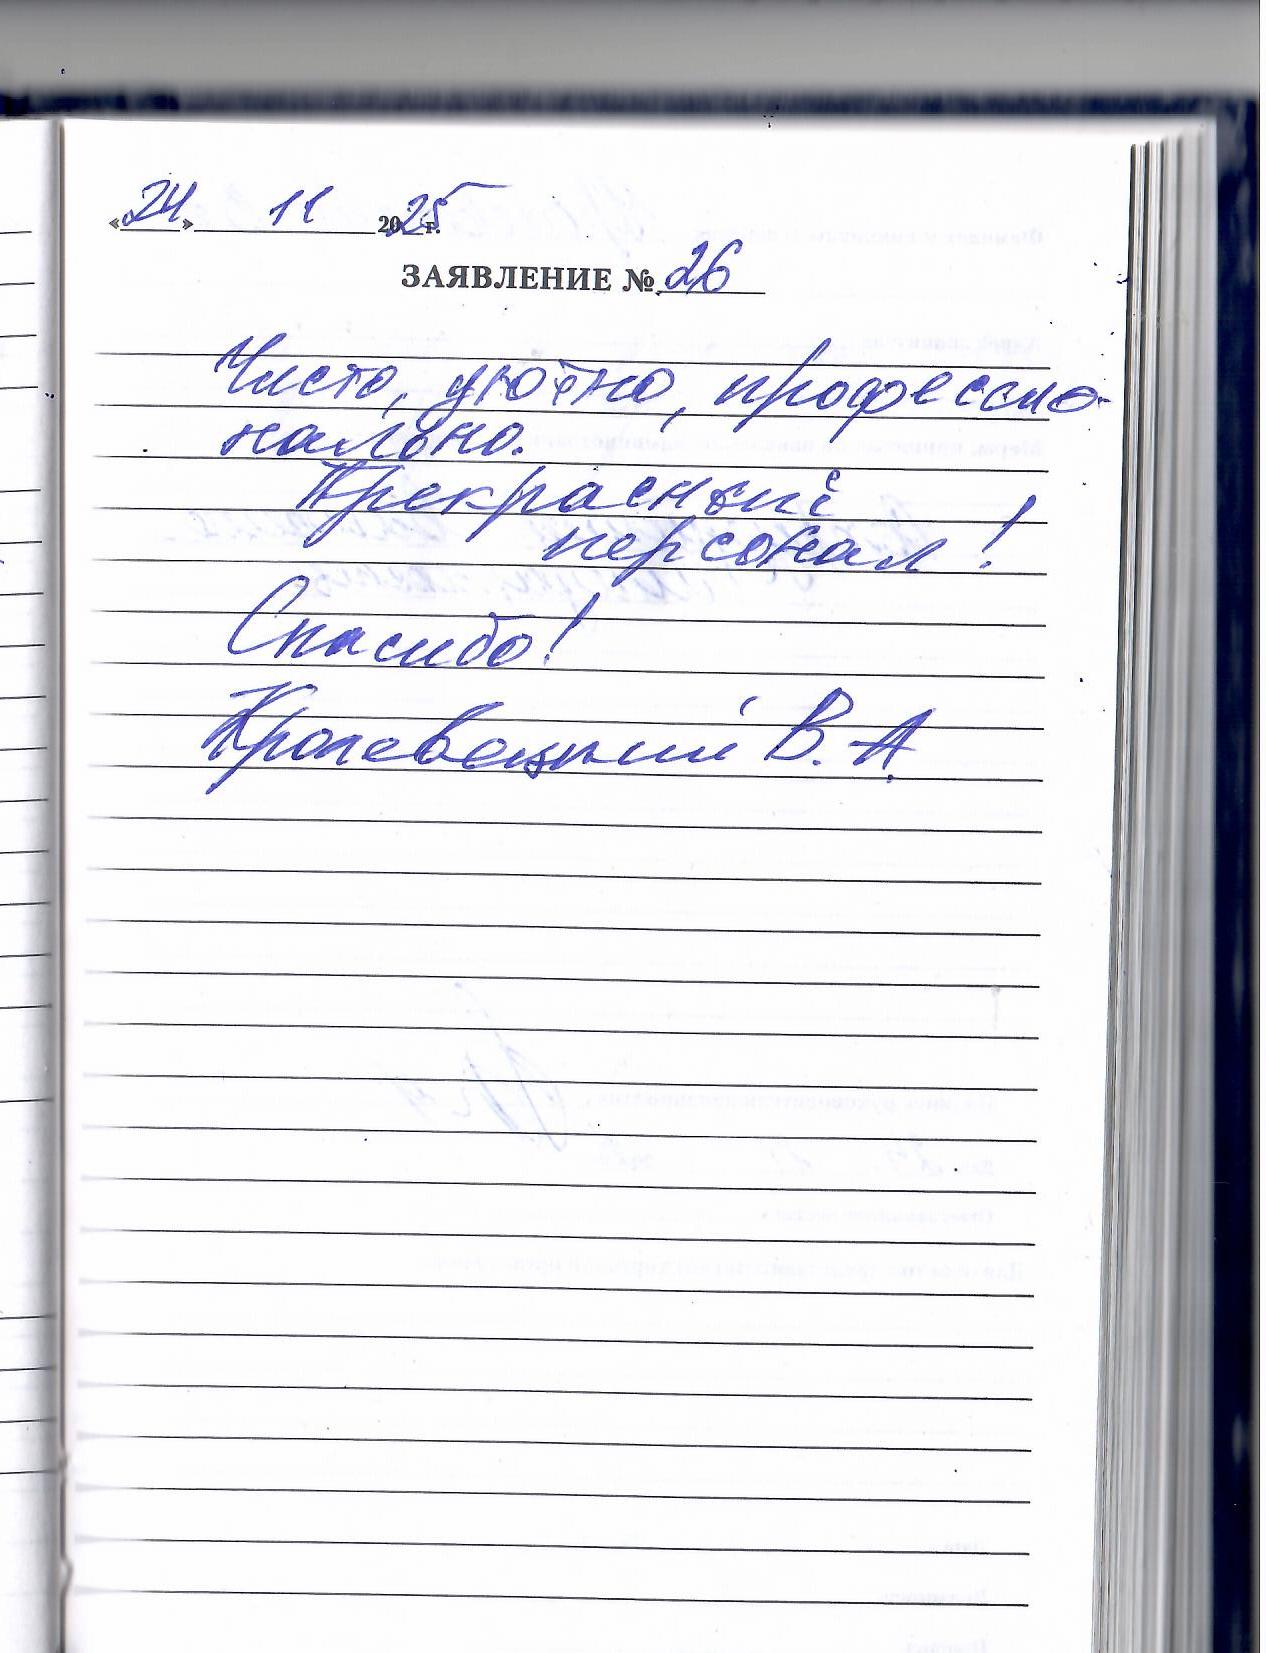 «24» 11 2025 г.
ЗАЯВЛЕНИЕ № 26
Чисто, уютно, профессио-
нально.
Прекрасный
персонал!
Спасибо!
В. А.